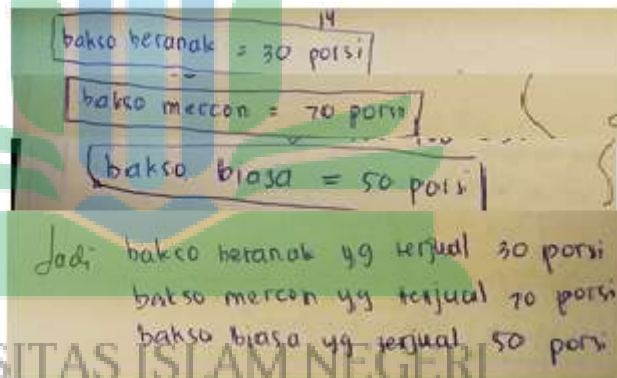 14
bakso beranak = 30 porsi
bakso mercon = 70 porsi
bakso biasa = 50 porsi
Jadi bakso beranak yg terjual 30 porsi
bakso mercon yg terjual 70 porsi
bakso biasa yg terjual 50 porsi
SITAS ISLAM NEGERI